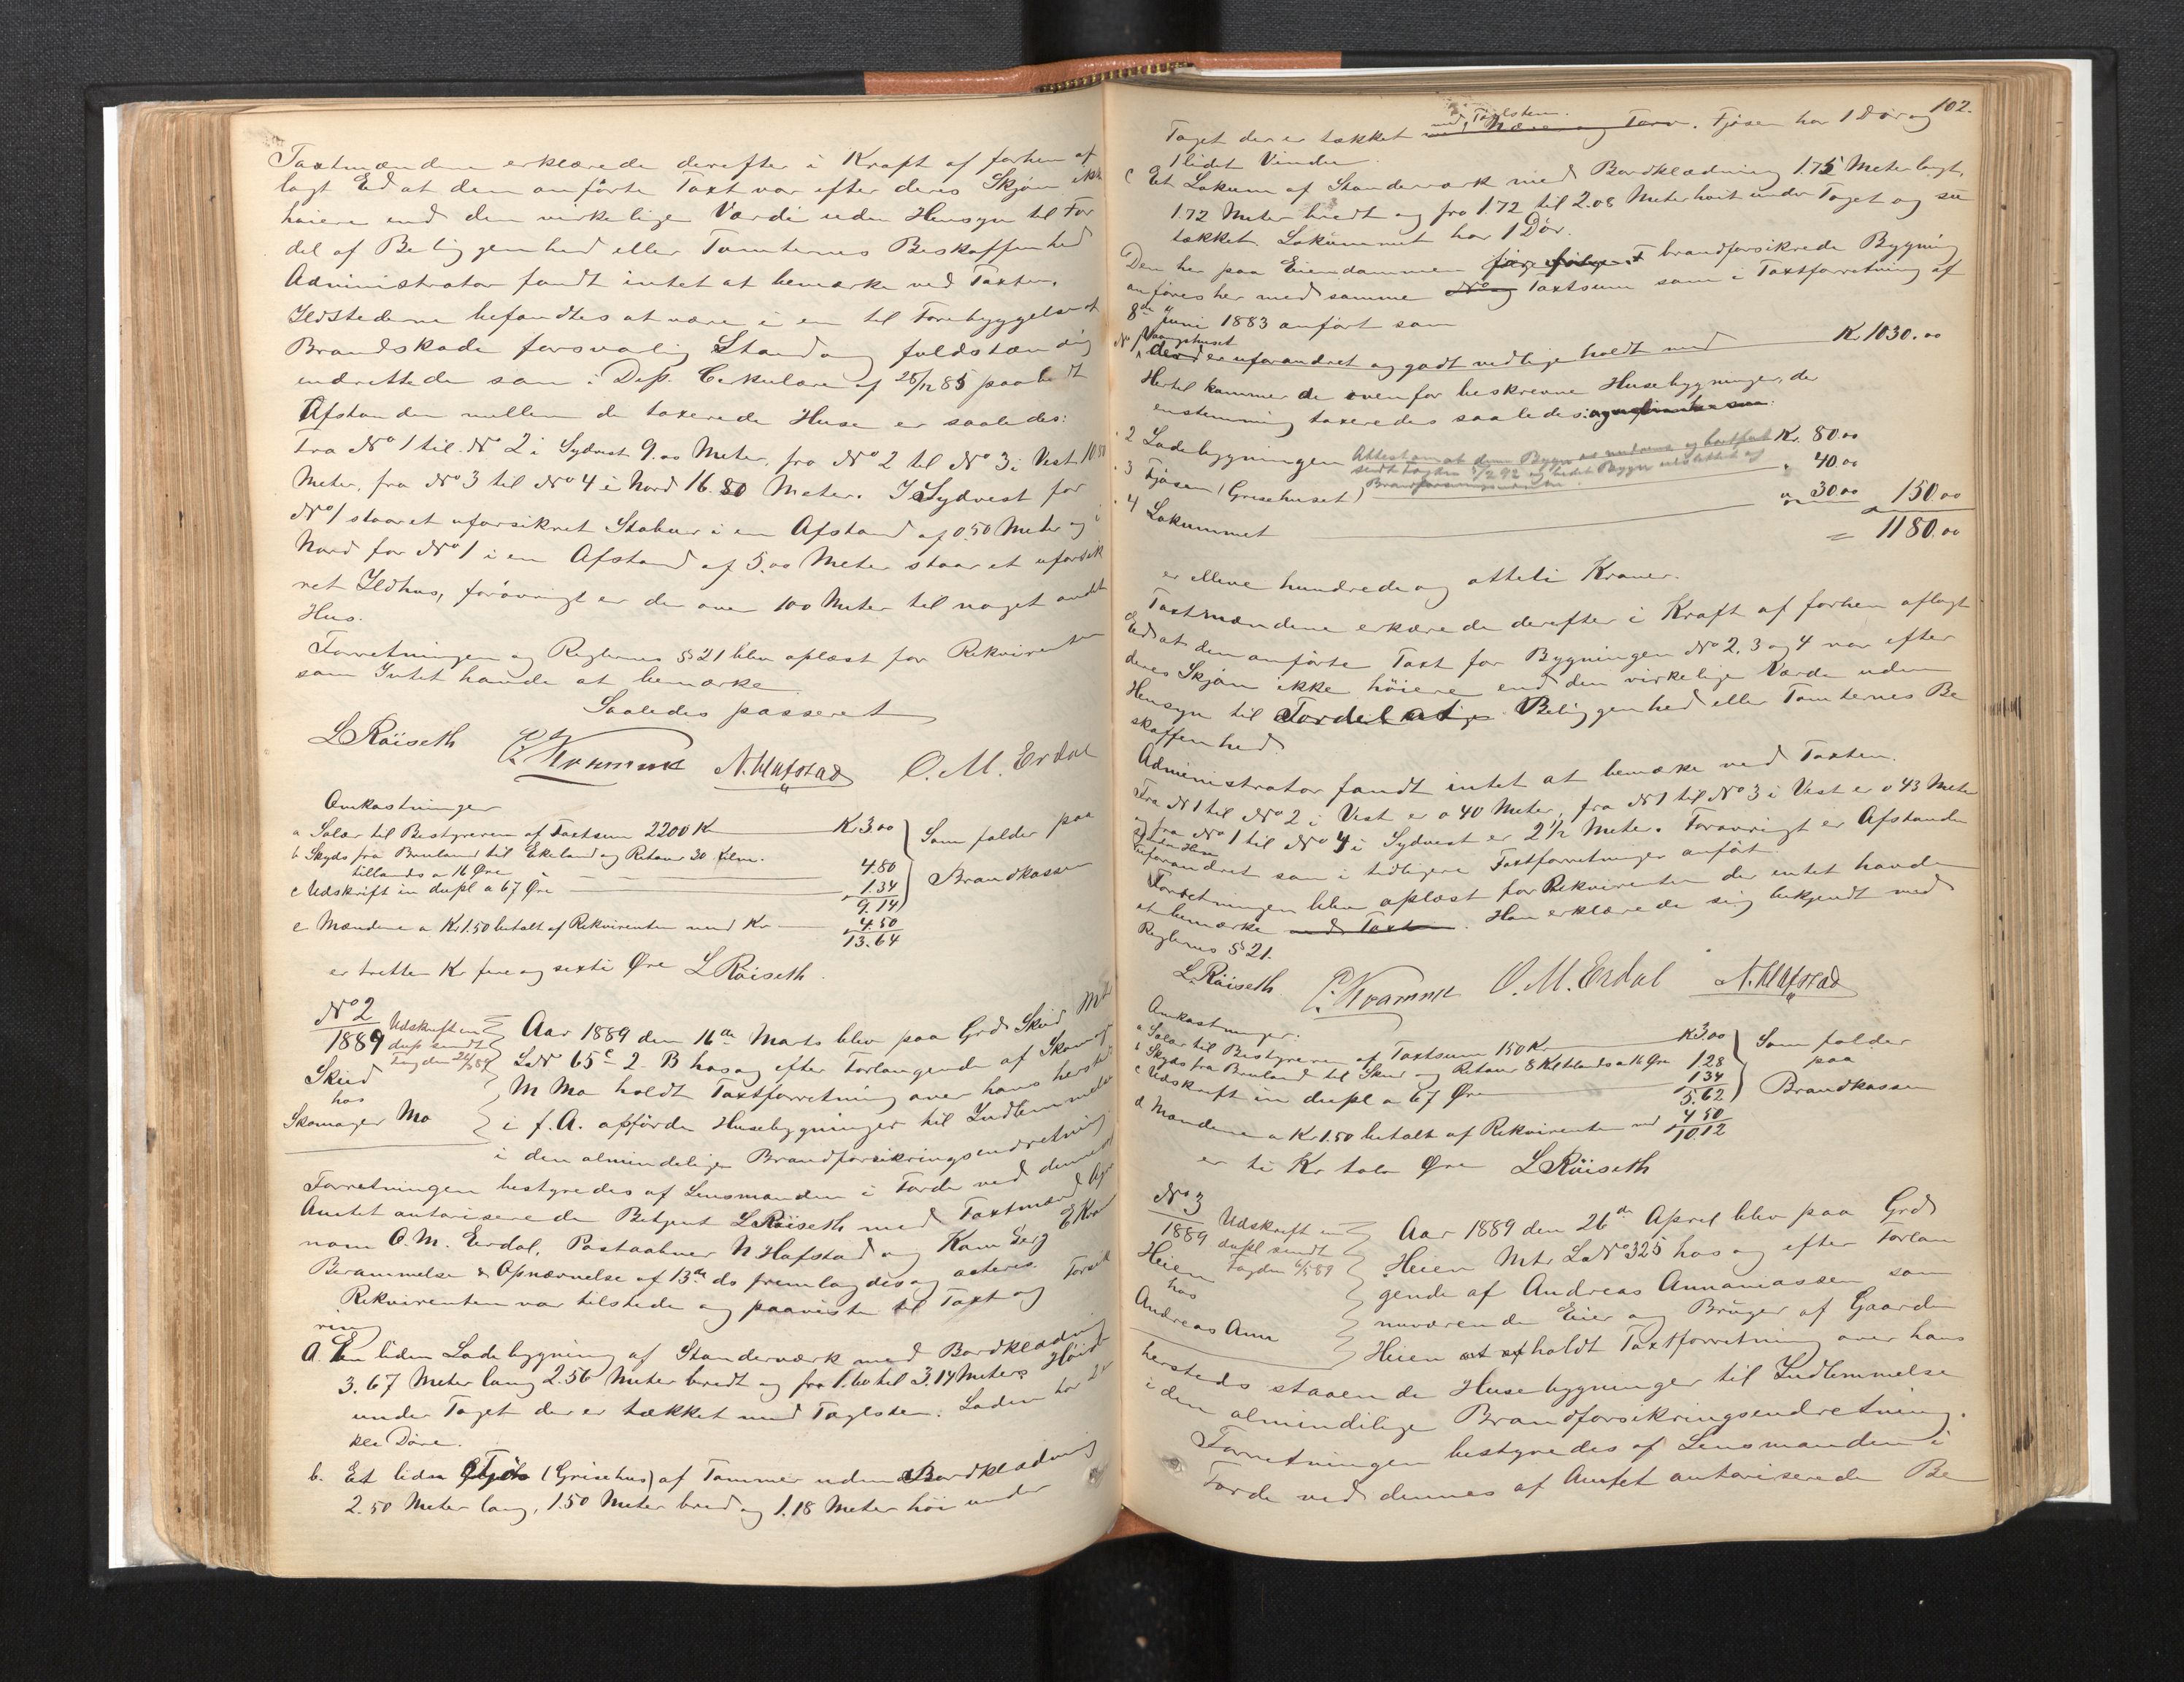 Taxtmændene erklærede derefter i Kraft af forhen af
lagt Ed at den anførte Taxt var efter deres Skjøn ikke
høiere end den virkelige Værdi uden Hensyn til For
del af Beliggenhed eller Tomternes Beskaffenhed
Administrator fandt intet at bemærke ved Taxten.
Ildstederne befandtes at være i en til Forebyggelse af
Brandskade forsvarlig Stand og fuldstændig
indrettede som i Dep. Cirkulære af 28/12 85 paabudt
Afstanden mellem de taxerede Huse er saaledes:
Fra No 1 til No 2 i Sydvest 9.00 Meter, fra No 2 til No 3 i Vest 10.80
Meter, fra No 3 til No 4 i Nord 16.80 Meter. I Sydvest for
No 1 staar et uforsikret Stabur i en Afstand af 0.50 Meter og i
Nord for No 1 i en Afstand af 5.00 Meter staar et uforsik
ret Ildhus, forøvrigt er der over 100 Meter til noget andet
Hus.
Forretningen og Reglernes §21 blev oplæst for Rekvirenten
som Intet havde at bemærke
Saaledes passeret
L Røiseth N. Hafstad O. M. Erdal
Omkostninger
a Salær til Bestyreren af Taxtsum 2200 Kr Kr 3.00
b Skyds fra Bruland til Ekeland og Retour 30 Kilm.
tillands a 16 Øre 4.80
c Udskrift in dupl a 67 Øre 1.34
9.14
Som falder paa
Brandkassen
e Mændene a Kr 1.50 betalt af Rekvirenten med Kr 4.50
13.64
er tretten Kr fire og sexti Øre L Røiseth.
No 2
1889
Skeid
hos
Skomager Mo
Udskrift in
dupl sendt
Fogden 26/3 89
Aar 1889 den 16de Marts blev paa Grd Skeid Mtr
LNo 65c 2. B hos og efter Forlangende af Skomager
M Mo holdt Taxtforretning over hans hersteds
i f. A. opførde Husebygninger til Indlemmelse
i den almindelige Brandforsikringsindretning
Forretningen bestyredes af Lensmanden i Førde ved dennes af
Amtet autoriserede Betjent L Røiseth med Taxtmænd Agro
nom O. M. Erdal, Postaabner N Hafstad og
Berammelse & Opnævnelse af 13de ds fremlagdes og acteres.
Rekvirenten var tilstede og paaviste til Taxt og Forsik
ring
A. En liden Ladebygning af Standerværk med Bordklædning
3.67 Meter lang 2.56 Meter bredt og fra 1.60 til 3.14 Meters Høide
under Taget der er tækket med Taglsten. Laden har 2 en
kle Døre.
b. Et liden Fjøs (Grisehus) af Tømmer uden Bordklædning
2.50 Meter lang, 1.50 Meter bred og 1.18 Meter høi under
102.
med Taglsten.
Taget der er tækket med Næver og Torv. Fjøsen har 1 Dør og
1 lidet Vindu.
c Et Lokum af Standerværk med Bordklædning 1.75 Meter langt,
1.72 Meter bredt og fra 1.72 til 2.08 Meter høit under Taget og
tækket. Lokummet har 1 Dør.
Den her paa Eiendommen brandforsikrede Bygning
anføres her med samme No og Taxtsum som i Taxtforretning af
8de Juni 1883 anført som
No 1 Vaaningshuset
der er uforandret og godt vedlige holdt med Kr 1030.00
Hertil kommer de ovenfor beskrevne Husebygninger, der
enstemmig taxeredes saaledes:
. 2 Ladebygningen Kr. 80.00
Attest om at denne Bygn er nedrevet og bortført
sendt Fogden 5/2 92
. 3 Fjøsen (Grisehuset) " 40.00
. 4 Lokummet " 30.00 150.00
= 1180.00
er elleve hundrede og otteti Kroner.
Taxtmændene erkærede derefter i Kraft af forhen aflagt
Ed at den anførte Taxt for Bygningen No 2, 3 og 4 var efter
deres Skjøn ikke høiere end den virkelige Værde uden
Hensyn til Fordel af Beliggenhed eller Tomternes Be
skaffenhed.
Administrator fandt intet at bemærke ved Taxten.
Fra No 1 til No 2 i Vest er 40 Meter, fra No 1 til No 3 i Vest er 43 Meter
og fra No 1 til No 4 i Sydvest er 2 1/2 Meter. Forøvrigt er Afstanden
uforandret som i tidligere Taxtforretninger anført
Forretningen blev oplæst for Rekvirenten der intet havde
at bemærke ved Taxten. Han erklærede sig bekjendt med
Reglernes §21.
L. Røiseth. O. M. Erdal N. Hafstad
Omkostninger.
a Salær til Bestyreren af Taxtsum 150 Kr Kr 3.00
b Skyds fra Bruland til Skeid og Retour 8 Kil tillands a 16 Øre 1.28
c Udskrift in dupl a 67 Øre 1.34
5.62
Som falder
paa
Brandkassen
d Mændene a Kr 1.50 betalt af Rekvirenten med 4.50
10.12
er ti Kr tolv Øre L Røiseth
No 3
1889
Heien
hos
Andreas Ann
Udskrift in
dupl sendt
Fogden 6/5 89
Aar 1889 den 26de April blev paa Grd
Heien Mtr LNo 325 hos og efter Forlan
gende af Andreas Annaniassen som
nuværende Eier og Bruger af Gaarden
Heien holdt Taxtforretning over hans
hersteds staaende Husebygninger til Indlemmelse
i den almindelige Brandforsikringsindretning.
Forretningen bestyredes af Lensmanden i
Førde ved dennes af Amtet autoriserede Be